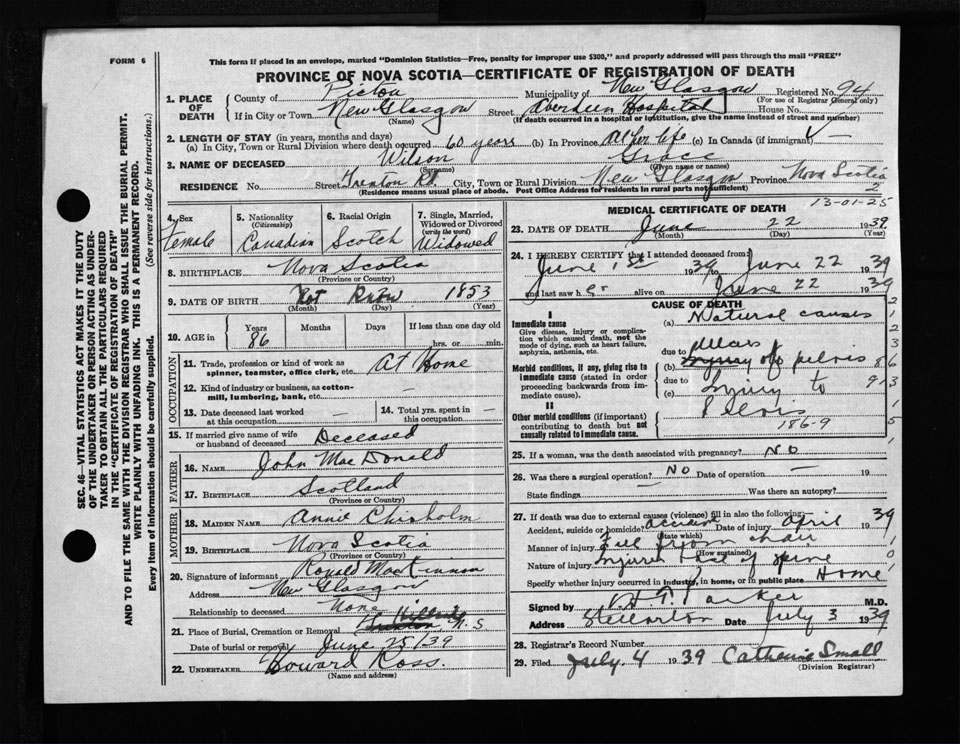 FORM 6
This form if placed in an envelope, marked "Dominion Statistics—Free, penalty for improper use $300," and properly addressed will pass through the mail "FREE"
PROVINCE OF NOVA SCOTIA—CERTIFICATE OF REGISTRATION OF DEATH
1. PLACE OF DEATH
County of Pictou Municipality of New Glasgow Registered No. 94
(For use of Registrar General only)
If in City or Town New Glasgow Street Aberdeen Hospital House No.
(Name) (If death occurred in a hospital or institution, give the name instead of street and number)
2. LENGTH OF STAY (in years, months and days)
(a) In City, Town or Rural Division where death occurred 60 years (b) In Province All her life (c) In Canada (if immigrant) —
3. NAME OF DECEASED Wilson Grace
(Surname) (Given name or names)
RESIDENCE No. Street Trenton Rd. City, Town or Rural Division New Glasgow Province Nova Scotia
(Residence means usual place of abode. Post Office Address for residents in rural parts not sufficient)
2
13-01-25
4. Sex Female
5. Nationality (Citizenship) Canadian
6. Racial Origin Scotch
7. Single, Married, Widowed or Divorced (write the word) Widowed
8. BIRTHPLACE Nova Scotia
(Province or Country)
9. DATE OF BIRTH Not Know 1853
(Month) (Day) (Year)
10. AGE in Years 86 Months Days If less than one day old
hrs. or min.
OCCUPATION
11. Trade, profession or kind of work as spinner, teamster, office clerk, etc. At Home
12. Kind of industry or business, as cotton-mill, lumbering, bank, etc. —
13. Date deceased last worked at this occupation —
14. Total yrs. spent in this occupation —
15. If married give name of wife or husband of deceased Deceased
FATHER
16. NAME John MacDonald
17. BIRTHPLACE Scotland
(Province or Country)
MOTHER
18. MAIDEN NAME Annie Chisholm
19. BIRTHPLACE Nova Scotia
(Province or Country)
20. Signature of informant Ronald MacKinnon
Address New Glasgow
Relationship to deceased None
21. Place of Burial, Cremation or Removal N.S
Date of burial or removal June 25/39
22. UNDERTAKER Howard Ross.
(Name and address)
MEDICAL CERTIFICATE OF DEATH
23. DATE OF DEATH June 22 1939
(Month) (Day) (Year)
24. I HEREBY CERTIFY that I attended deceased from:
June 1st 1939 to June 22 1939
and last saw her alive on June 22 1939
CAUSE OF DEATH
I
Immediate cause
Give disease, injury or complication which caused death, not the mode of dying, such as heart failure, asphyxia, asthenia, etc.
(a) Natural causes
due to
(b) of pelvis
Morbid conditions, if any, giving rise to immediate cause (stated in order proceeding backwards from immediate cause).
due to
(c) Injury to
Pelvis
II
Other morbid conditions (if important) contributing to death but not causally related to immediate cause.
186-9
25. If a woman, was the death associated with pregnancy? No
26. Was there a surgical operation? No Date of operation — 19
State findings Was there an autopsy?
27. If death was due to external causes (violence) fill in also the following:
Accident, suicide or homicide? accident Date of injury April 1939
(State which)
Manner of injury Fell from chair
(How sustained)
Nature of injury Injured base of spine
Specify whether injury occurred in industry, in home, or in public place Home
Signed by H. T. Parker M.D.
Address Stellarton Date July 3 1939
28. Registrar's Record Number
29. Filed July. 4 1939 Catherine Small
(Division Registrar)
SEC. 46—VITAL STATISTICS ACT MAKES IT THE DUTY
OF THE UNDERTAKER OR PERSON ACTING AS UNDER-
TAKER TO OBTAIN ALL THE PARTICULARS REQUIRED
IN THE "CERTIFICATE OF REGISTRATION OF DEATH"
AND TO FILE THE SAME WITH THE DIVISION REGISTRAR WHO SHALL ISSUE THE BURIAL PERMIT.
WRITE PLAINLY WITH UNFADING INK. THIS IS A PERMANENT RECORD.
Every item of information should be carefully supplied. (See reverse side for instructions.)